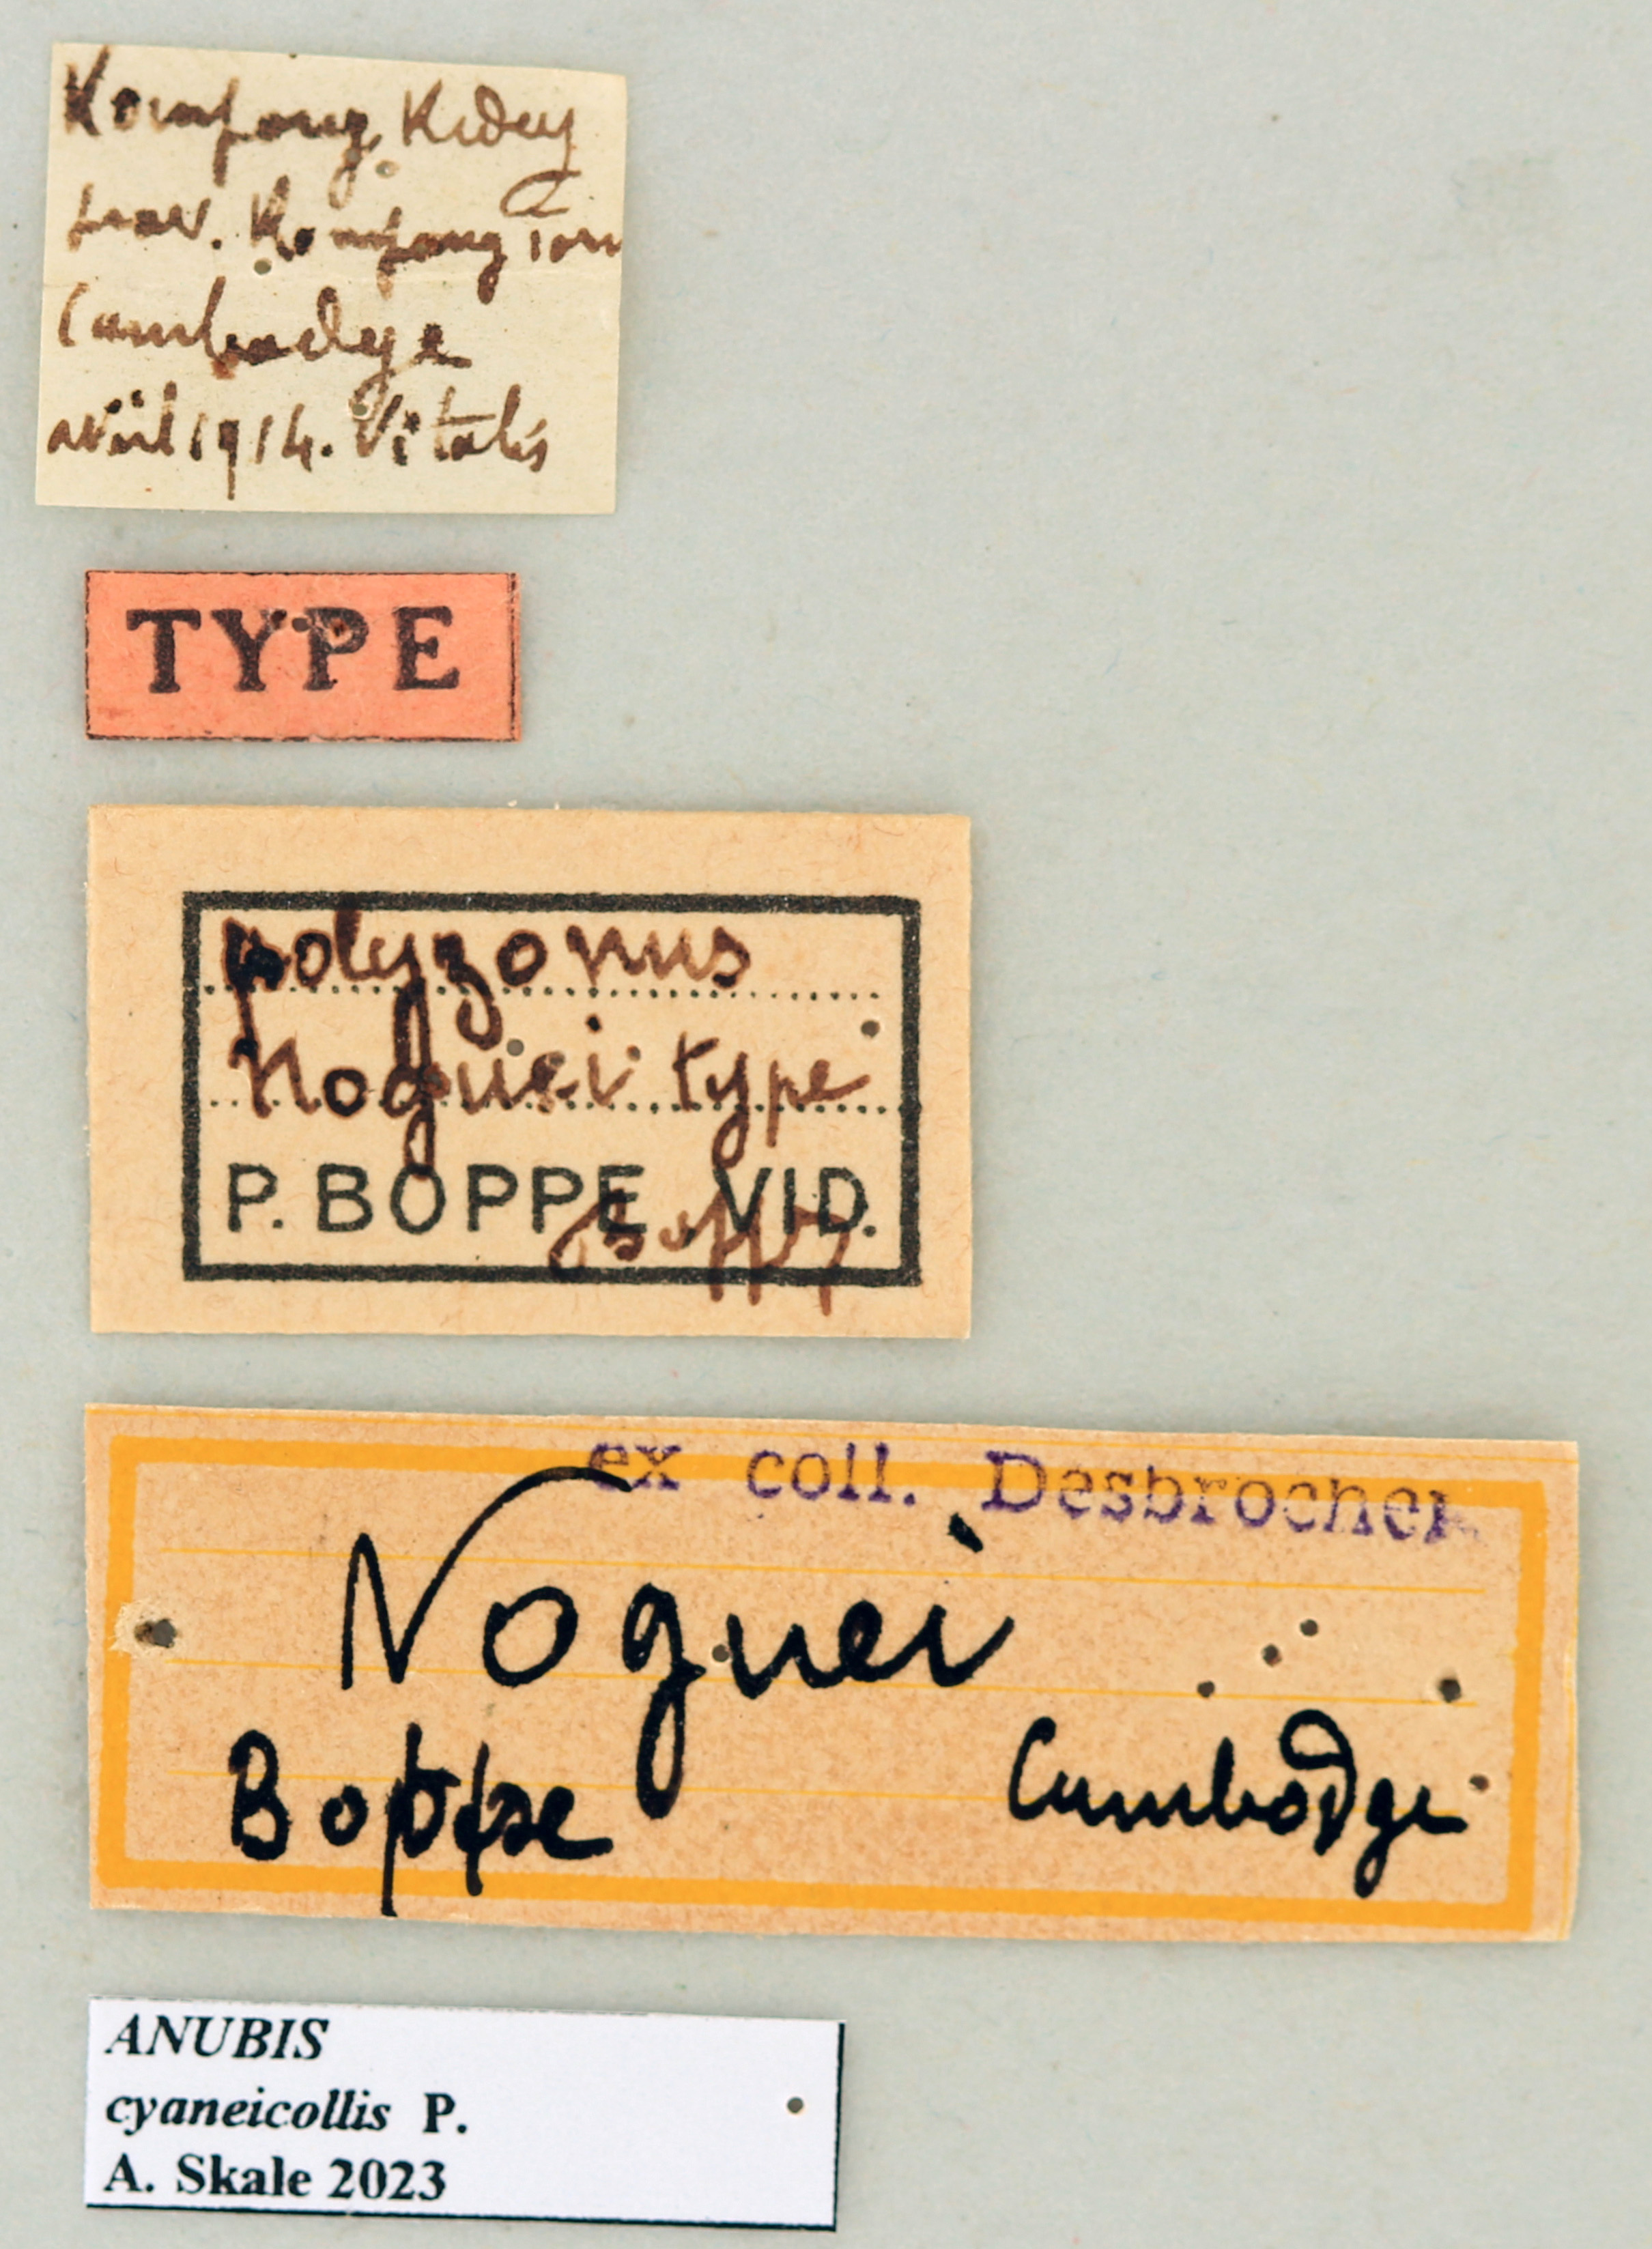 Kompong Kedey
prov. Kompong Tom
Cambodge
avril 1914. Vitalis
TYPE
polyzonus
Noguei type
P. BOPPE VID.
Boppe
ex coll. Desbrochers
Noguei
Boppe Cambodge
ANUBIS
cyaneicollis P.
A. Skale 2023